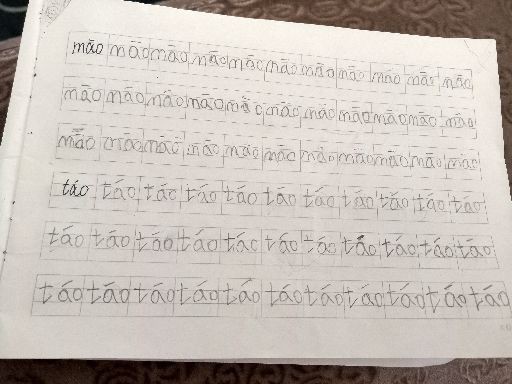 māo māo māo māo māo māo māo māo māo māo māo
māo māo māo māo māo māo māo māo māo māo māo
māo māo māo māo māo māo māo māo māo māo māo
táo táo táo táo táo táo táo táo táo táo táo
táo táo táo táo táo táo táo táo táo táo táo
táo táo táo táo táo táo táo táo táo táo táo